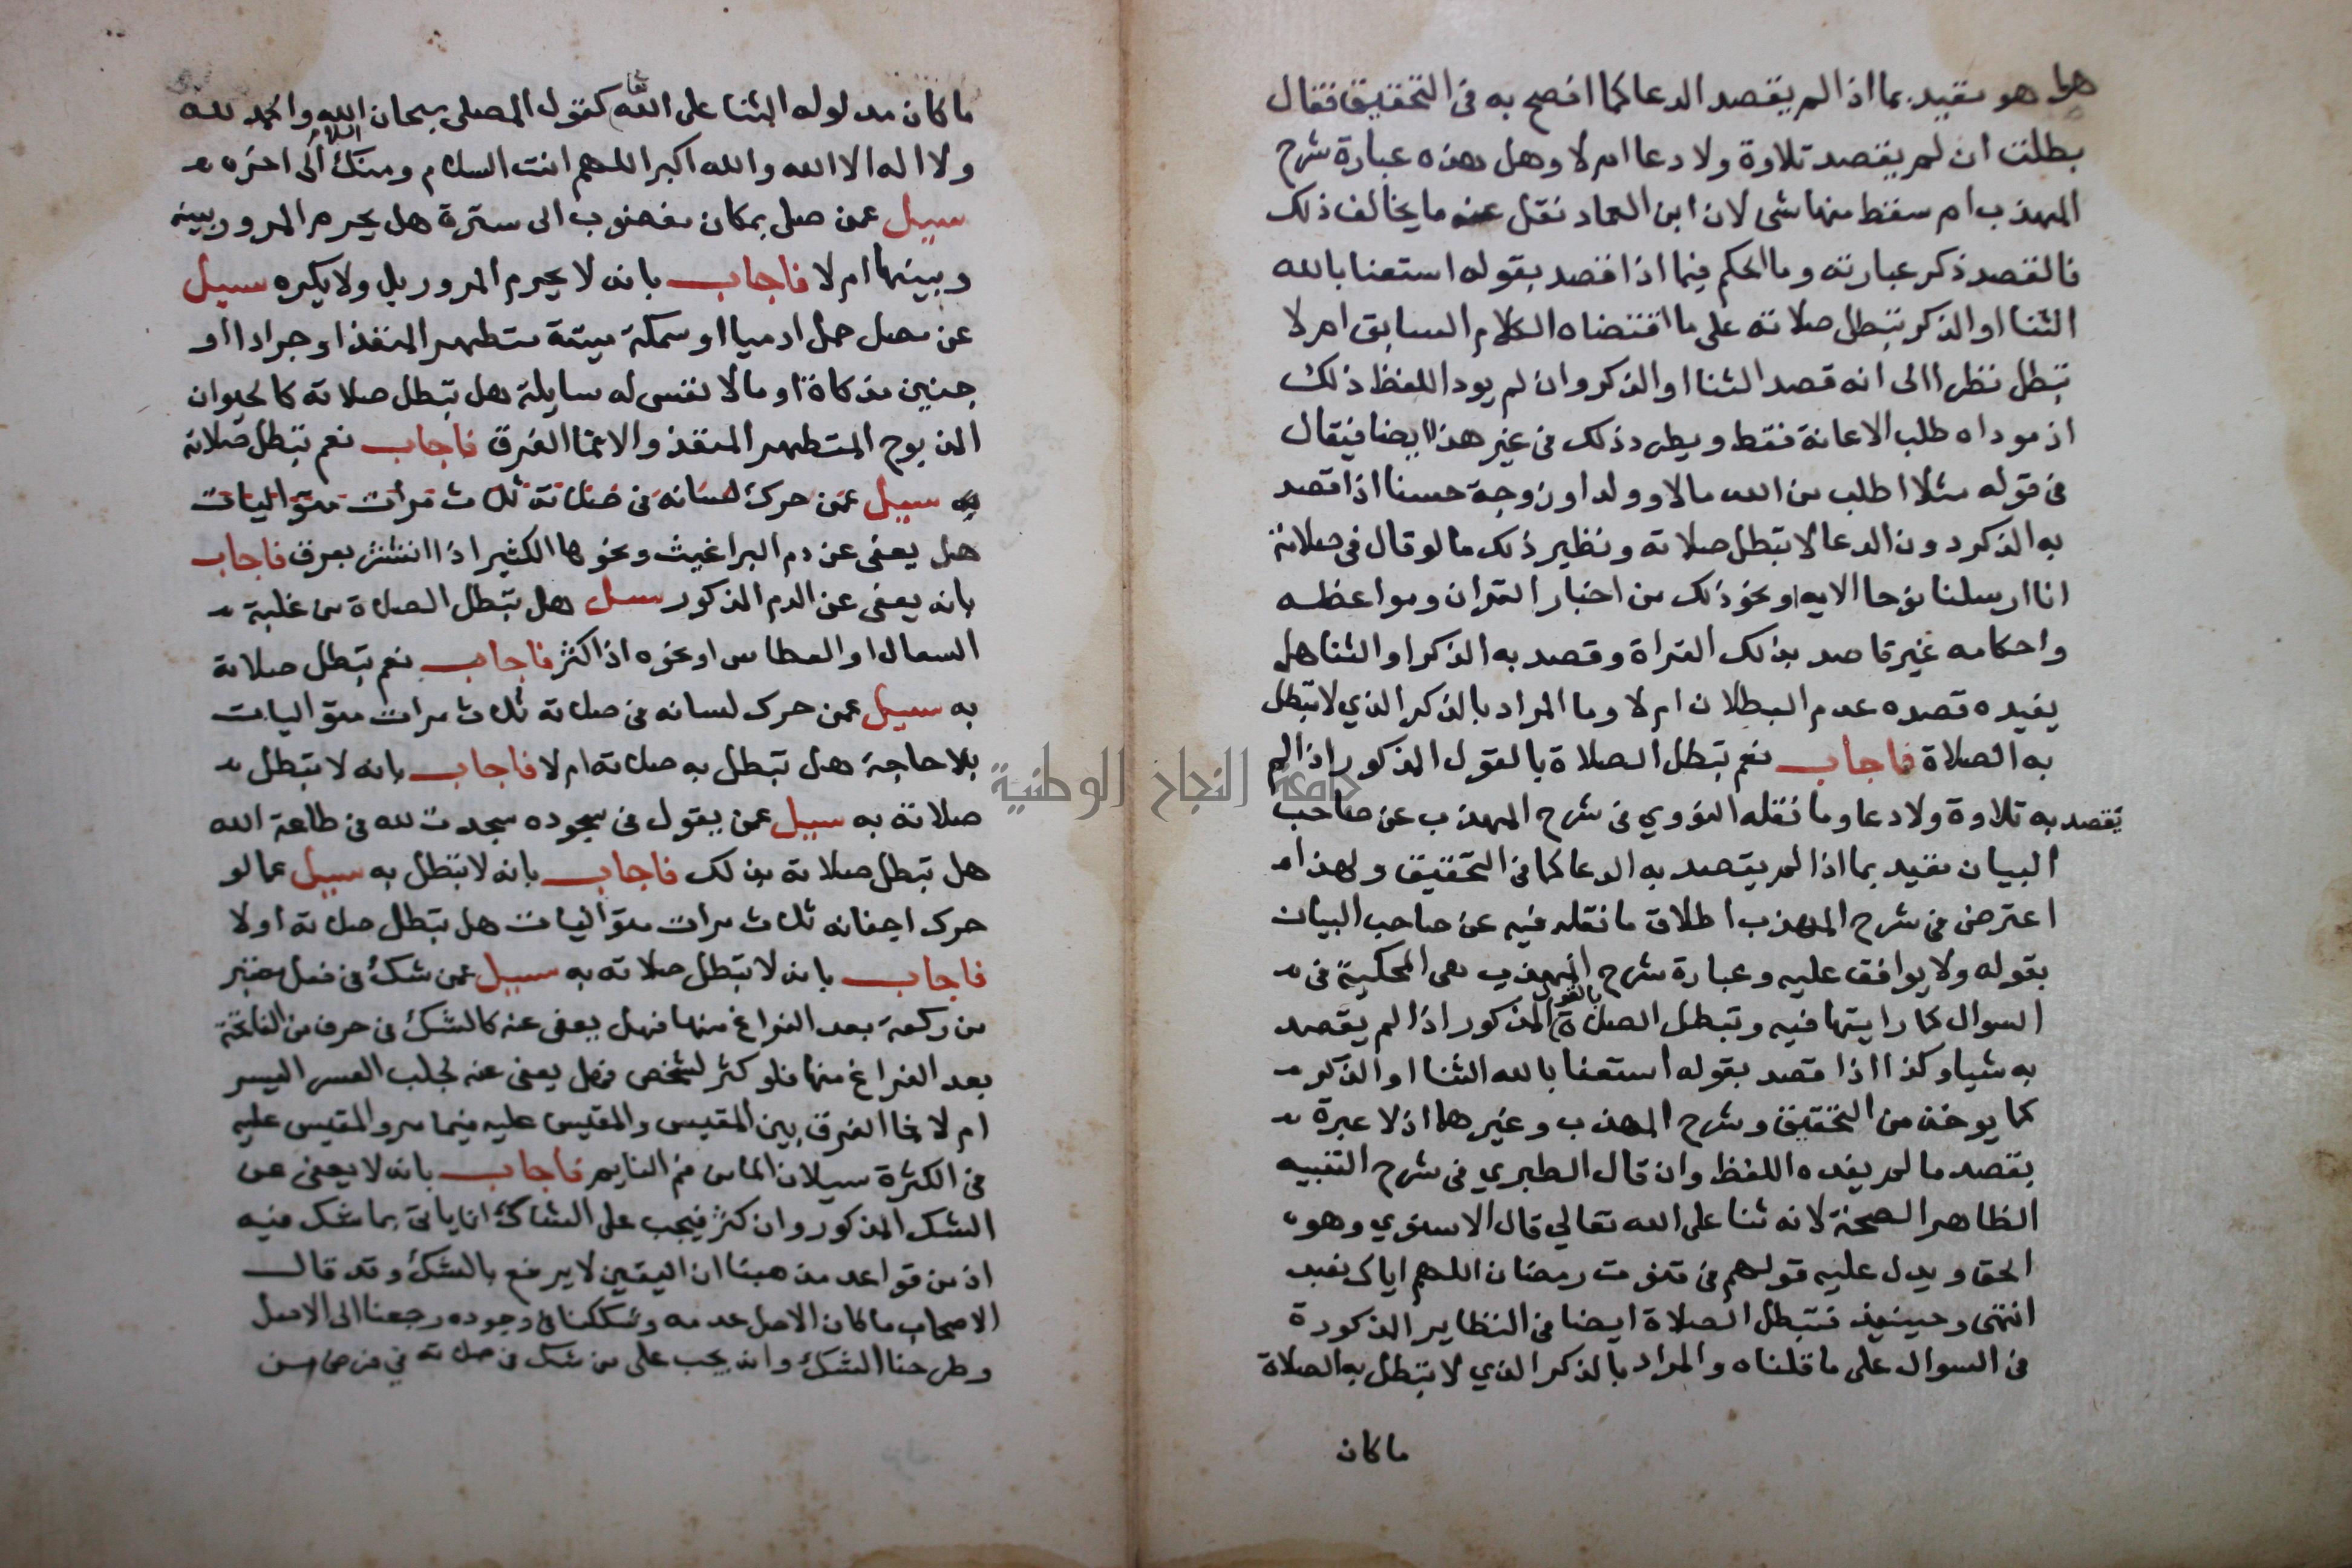 هل هو مقيد بما اذا لم يقصد الدعا كما افصح به في التحقيق فقال
بطلت ان لم يقصد تلاوة ولا دعا ام لا وهل هذه عبارة شرح
المهذب ام سقط منها شي لان ابن العماد نقل عنه ما يخالف ذلك
فالقصد ذكر عبارته وما الحكم فيما اذا قصد بقوله استعنا بالله
الثنا او الذكر تبطل صلاته على ما اقتضاه الكلام السابق ام لا
تبطل نظرا الى انه قصد الثنا او الذكر وان لم يود اللفظ ذلك
اذ موداه طلب الاعانة فقط ويطرد ذلك في غير هذا ايضا فيقال
في قوله مثلا اطلب من الله مالا وولدا وزوجة حسنا اذا قصد
به الذكر دون الدعا لا تبطل صلاته ونظير ذلك ما لو قال في صلاته
انا ارسلنا نوحا الايه او نحو ذلك من اخبار القران ومواعظه
واحكامه غير قاصد بذلك القراة وقصد به الذكر او الثنا هل
يفيده قصده عدم البطلان ام لا وما المراد بالذكر الذي لا تبطل
به الصلاة فاجاب نعم تبطل الصلاة بالقول المذكور اذا لم
يقصد به تلاوة ولا دعا وما نقله النووي في شرح المهذب عن صاحب
البيان مقيد بما اذا لم يقصد به الدعا كما في التحقيق ولهذا
اعترض في شرح المهذب اطلاق ما نقله فيه عن صاحب البيان
بقوله ولا يوافق عليه وعبارة شرح المهذب هي المحكية في
السوال كما رايتها فيه وتبطل الصلاة بالقول المذكور اذا لم يقصد
به شيا وكذا اذا قصد بقوله استعنا بالله الثنا او الذكر
كما يوخذ من التحقيق وشرح المهذب وغيرهما اذ لا عبرة
بقصد ما لم يفده اللفظ وان قال الطبري في شرح التنبيه
الظاهر الصحة لانه ثنا على الله تعالي قال الاسنوي وهو
الحق ويدل عليه قولهم في قنوت رمضان اللهم اياك نعبد
انتهى وحينيذ فتبطل الصلاة ايضا في النظاير المذكورة
في السوال على ما قلناه والمراد بالذكر الذي لا تبطل به الصلاة
ما كان
ما كان مدلوله الثنا على الله تعا كقول المصلى سبحان الله والحمد لله
ولا اله الا الله والله اكبر اللهم انت السلام ومنك السلام الى اخره
سيل عمن صلى بمكان مغصوب الى سترة هل يحرم المرور بينه
وبينها ام لا فاجاب بانه لا يحرم المرور بل ولا يكره سيل
عن مصل حمل ادميا او سمكة ميتة متطهر المنفذ او جرادا او
جنين مذكاة او ما لا نفس له سايلة هل تبطل صلاته كالحيوان
المذبوح المتطهر المنفذ والا فما الفرق فاجاب نعم تبطل صلاته
به سيل عمن حرك لسانه في صلاته ثلاث مرات متواليات
هل يعفى عن دم البراغيث ونحوها الكثير اذا انتشر بعرق فاجاب
بانه يعفى عن الدم المذكور سيل هل تبطل الصلاة من غلبة
السعال او العطاس او نحوه اذا كثر فاجاب نعم تبطل صلاته
به سيل عمن حرك لسانه في صلاته ثلاث مرات متواليات
بلا حاجة هل تبطل به صلاته ام لا فاجاب بانه لا تبطل
صلاته به سيل عمن يقول في سجوده سجدت لله في طاعة الله
هل تبطل صلاته بذلك فاجاب بانه لا تبطل به سيل عما لو
حرك اجفانه ثلاث مرات متواليات هل تبطل صلاته او لا
فاجاب بانه لا تبطل صلاته به سيل عمن شك في فعل
من ركعة بعد الفراغ منها فهل يعفى عنه كالشك في حرف من الفاتحة
بعد الفراغ منها فلو كثر لشخص فهل يعفى عنه لجلب العسر اليسر
ام لا فما الفرق بين المقيس والمقيس عليه فيما مر والمقيس عليه
في الكثرة سيلان الما من فم النايم فاجاب بانه لا يعفى عن
الشك المذكور وان كثر فيجب على الشاك ان ياتي بما شك فيه
اذ من قواعد مذهبنا ان اليقين لا يرفع بالشك وقد قال
الاصحاب ما كان الاصل عدمه وشككنا في وجوده رجعنا الى الاصل
وطرحنا الشك وانه يجب على من شك في صلاته في فرض من
جامعة النجاح الوطنية